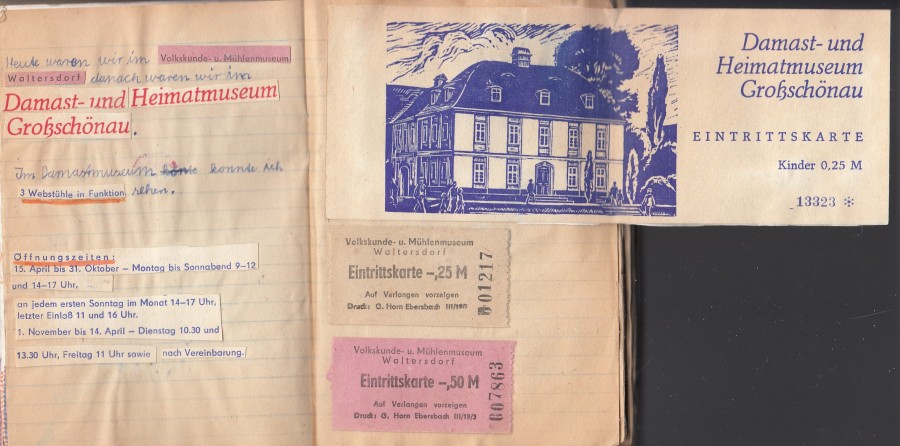 Heute waren wir im Volkskunde- u. Mühlenmuseum
Waltersdorf danach waren wir im
Damast- und Heimatmuseum
Großschönau.
Im Damastmuseum konnte ich
3 Webstühle in Funktion sehen.
Öffnungszeiten:
15. April bis 31. Oktober – Montag bis Sonnabend 9–12
und 14–17 Uhr,
an jedem ersten Sonntag im Monat 14–17 Uhr,
letzter Einlaß 11 und 16 Uhr.
1. November bis 14. April – Dienstag 10.30 und
13.30 Uhr, Freitag 11 Uhr sowie nach Vereinbarung.
Damast- und
Heimatmuseum
Großschönau
EINTRITTSKARTE
Kinder 0,25 M
13323 *
Volkskunde- u. Mühlenmuseum
Waltersdorf
Eintrittskarte –,25 M
Auf Verlangen vorzeigen
Druck: G. Horn Ebersbach
01217
Volkskunde- u. Mühlenmuseum
Waltersdorf
Eintrittskarte –,50 M
Auf Verlangen vorzeigen
Druck: G. Horn Ebersbach III/19/3
007863